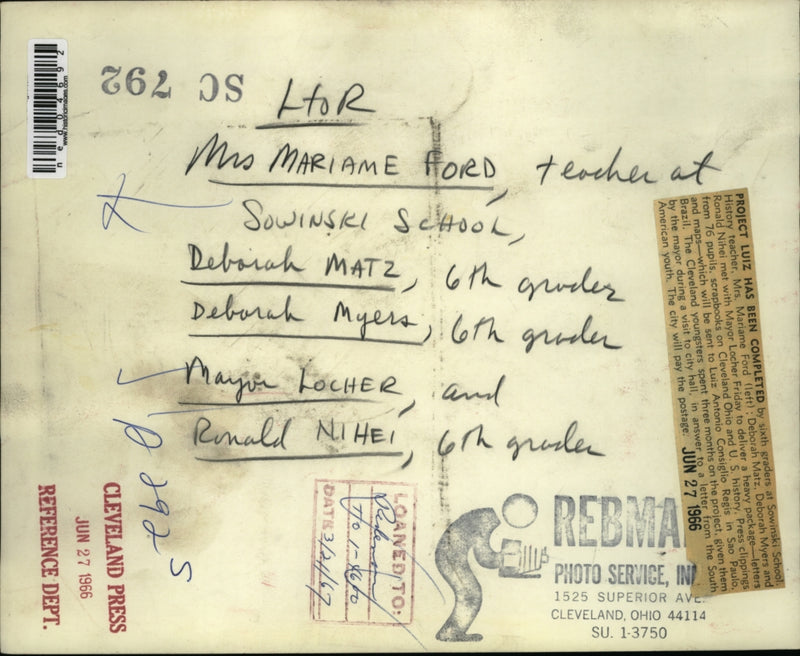 ned04692
www.historicimages.com
SC 792
L to R
Mrs MARIAME FORD, teacher at
SOWINSKI SCHOOL,
Deborah MATZ, 6th grader
Deborah Myers, 6th grader
Mayor LOCHER, and
Ronald NIHEI, 6th grader
PROJECT LUIZ HAS BEEN COMPLETED by sixth graders at Sowinski School.
History teacher, Mrs. Mariame Ford (left); Deborah Matz, Deborah Myers and
Ronald Nihei met with Mayor Locher Friday to deliver a heavy package—letters
from 76 pupils, scrapbooks on Cleveland Ohio and U. S. history, Press clippings
and maps—which will be sent to Luiz Antonio Consiglio Regis in Sao Paulo,
Brazil. The Cleveland youngsters spent three months on the project, given them
by the mayor during a visit to city hall, in answer to a letter from the South
American youth. The city will pay the postage.
JUN 27 1966
CLEVELAND PRESS
JUN 27 1966
REFERENCE DEPT.
LOANED TO:
DATE
REBMA
PHOTO SERVICE, IN
1525 SUPERIOR AVE.
CLEVELAND, OHIO 44114
SU. 1-3750